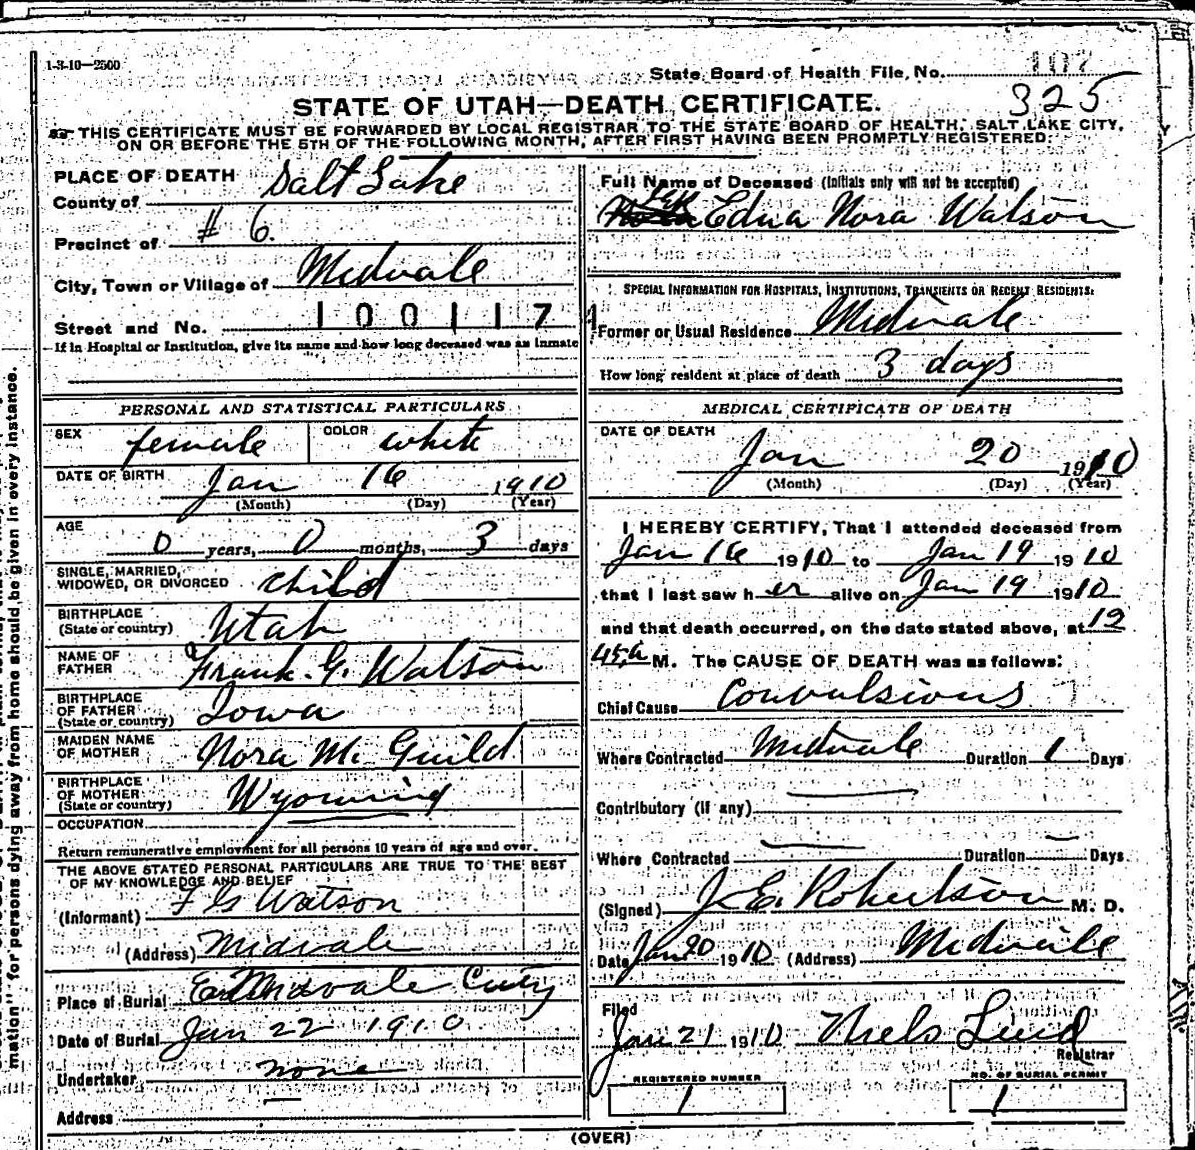 1-3-10—2500
107
State Board of Health File, No.
325
STATE OF UTAH—DEATH CERTIFICATE.
THIS CERTIFICATE MUST BE FORWARDED BY LOCAL REGISTRAR TO THE STATE BOARD OF HEALTH, SALT LAKE CITY,
ON OR BEFORE THE 5TH OF THE FOLLOWING MONTH, AFTER FIRST HAVING BEEN PROMPTLY REGISTERED.
PLACE OF DEATH
County of Salt Lake
Precinct of # 6.
City, Town or Village of Midvale
Street and No. 1001174
If in Hospital or Institution, give its name and how long deceased was an inmate
PERSONAL AND STATISTICAL PARTICULARS
SEX female COLOR white
DATE OF BIRTH Jan 16 1910
(Month) (Day) (Year)
AGE
0 years, 0 months, 3 days
SINGLE, MARRIED,
WIDOWED, OR DIVORCED child
BIRTHPLACE
(State or country) Utah
NAME OF
FATHER Frank. G. Watson
BIRTHPLACE
OF FATHER
(State or country) Iowa
MAIDEN NAME
OF MOTHER Nora Mc Guild
BIRTHPLACE
OF MOTHER
(State or country) Wyoming
OCCUPATION
Return remunerative employment for all persons 10 years of age and over.
THE ABOVE STATED PERSONAL PARTICULARS ARE TRUE TO THE BEST
OF MY KNOWLEDGE AND BELIEF
(Informant) F G Watson
(Address) Midvale
Place of Burial East Midvale Cmty
Date of Burial Jan 22 1910
Undertaker none
Address
Full Name of Deceased (Initials only will not be accepted)
Edna Nora Watson
SPECIAL INFORMATION FOR HOSPITALS, INSTITUTIONS, TRANSIENTS OR RECENT RESIDENTS:
Former or Usual Residence Midvale
How long resident at place of death 3 days
MEDICAL CERTIFICATE OF DEATH
DATE OF DEATH
Jan 20 1910
(Month) (Day) (Year)
I HEREBY CERTIFY, That I attended deceased from
Jan 16 1910 to Jan 19 1910
that I last saw her alive on Jan 19 1910
and that death occurred, on the date stated above, at 12
45 A M. The CAUSE OF DEATH was as follows:
Chief Cause Convulsions
Where Contracted Midvale Duration 1 Days
Contributory (if any)
Where Contracted Duration Days.
(Signed) J. E. Robertson M. D.
Date Jan 20 1910 (Address) Midvale
Filed
Jan 21 1910 Niels Lind
Registrar
REGISTERED NUMBER
1
NO. OF BURIAL PERMIT
1
(OVER)
mation" for persons dying away from home should be given in every instance.